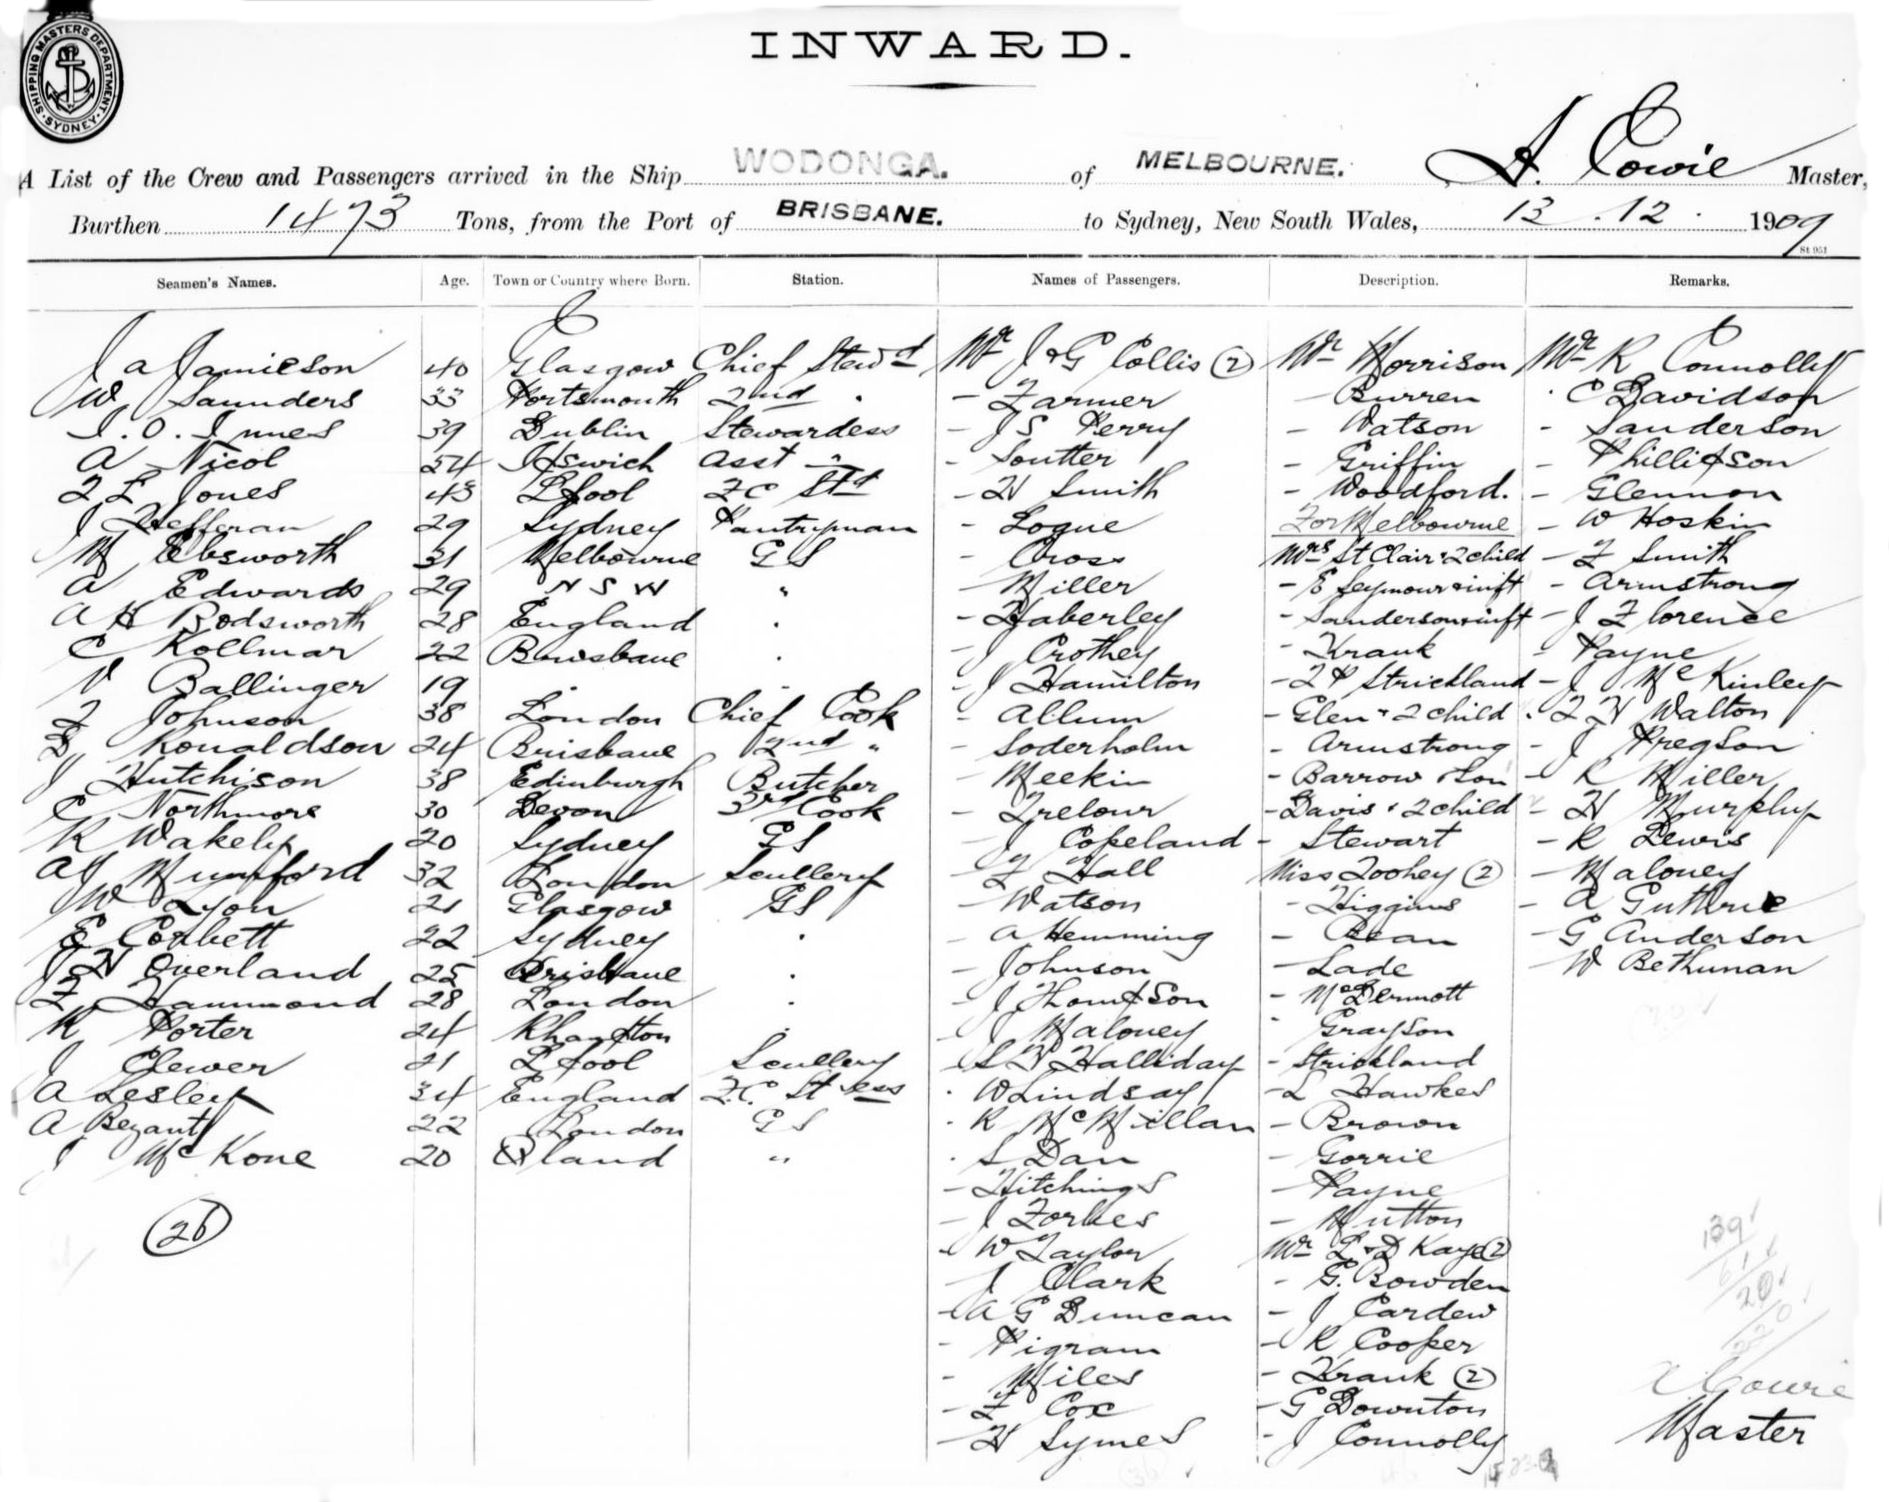 SHIPPING MASTERS DEPARTMENT
SYDNEY
INWARD.
A List of the Crew and Passengers arrived in the Ship WODONGA. of MELBOURNE. A. Cowie Master,
Burthen 1473 Tons, from the Port of BRISBANE. to Sydney, New South Wales, 13.12.1909
St 951
Seamen's Names. Age. Town or Country where Born. Station. Names of Passengers. Description. Remarks.
J A Jamieson 40 Glasgow Chief Stewd Mr J & G Collis (2) Mr Morrison Mr R Connolly
W Saunders 33 Portsmouth 2nd " - Farmer - Burren - C Davidson
I. O. Innes 39 Dublin Stewardess - J S Perry - Watson - Sanderson
A Nicol 54 Ipswich Asst " - Soutter - Griffin - Phillipson
F L Jones 43 L'pool F C Std - H Smith - Woodford. - Glennon
J Hefferan 29 Sydney Pantryman - Logue For Melbourne - W Hoskin
M Ebsworth 31 Melbourne G S - Cross Mrs St Clair & 2 child - F Smith
A Edwards 29 N S W " - Miller - E Seymour & inft - Armstrong
A H Bodsworth 28 England " - Haberley - Sanderson & inft - J Florence
C Kollmar 22 Brisbane " - J Crothey - Krank - Payne
V Ballinger 19 " " - J Hamilton - F P Strickland - J McKinley
F Johnson 38 London Chief Cook - Allum - Glen & 2 child - F H Walton
D Ronaldson 24 Brisbane 2nd " - Soderholm - Armstrong - J Gregson
J Hutchison 38 Edinburgh Butcher - Meekin - Barrow & Son - R Miller
C Northmore 30 Devon 3rd Cook - Trelour - Davis & 2 child - H Murphy
R Wakely 20 Sydney G S - J Copeland - Stewart - R Lewis
A J Mumford 32 London Scullery - F Hall Miss Toohey (2) - Maloney
W Lyon 21 Glasgow G S - Watson - Higgins - A Guthrie
E Corbett 22 Sydney " - A Hemming - Bean - G Anderson
J H Overland 25 Brisbane " - Johnson - Lade - W Bethunan
F Hammond 28 London " - J Thompson - McDermott
R Porter 24 " - J Maloney - Grayson
J Clewer 21 L'pool Scullery - S W Halliday - Strickland
A Lesley 34 England F.C. St ess - W Lindsay - L Hawkes
A Bezant 22 London G S - R McMillan - Brown
J McKone 20 Qland " - S Dan - Gorrie
- Hitchings - Payne
- J Forbes - Mutton
(26) - W Taylor Mr L & D Kaye (2)
- J Clark - G. Bowden
- A G Duncan - J Cardew
- Pigram - R Cooper
- Miles - Krank (2)
- F Cox - G Downton
- H Symes - J Connolly
139
61
20
220
A Cowie
Master